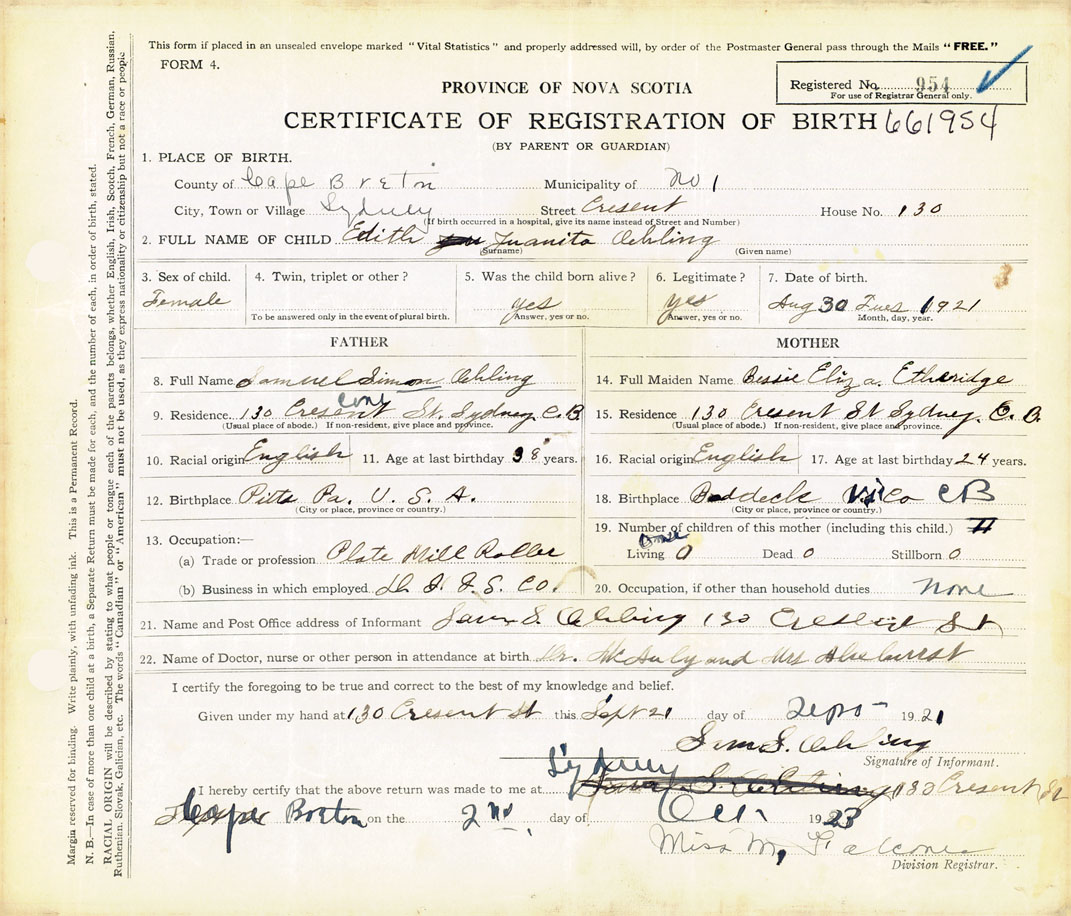 This form if placed in an unsealed envelope marked "Vital Statistics" and properly addressed will, by order of the Postmaster General pass through the Mails "FREE."
FORM 4.
Registered No. 954
For use of Registrar General only.
PROVINCE OF NOVA SCOTIA
CERTIFICATE OF REGISTRATION OF BIRTH 661954
(BY PARENT OR GUARDIAN)
1. PLACE OF BIRTH.
County of Cape Breton Municipality of No 1
City, Town or Village Sydney Street Cresent House No. 130
(If birth occurred in a hospital, give its name instead of Street and Number)
2. FULL NAME OF CHILD Edith Juanita Ohling
(Surname) (Given name)
3. Sex of child. 4. Twin, triplet or other? 5. Was the child born alive? 6. Legitimate? 7. Date of birth.
Female yes yes Aug 30 Tues 1921
To be answered only in the event of plural birth. Answer, yes or no. Answer, yes or no. Month, day, year.
FATHER MOTHER
8. Full Name Samuel Simon Ohling 14. Full Maiden Name Bessie Eliza. Etheridge
9. Residence 130 Cresent St. Sydney C.B 15. Residence 130 Cresent St Sydney. C.B.
(Usual place of abode.) If non-resident, give place and province. (Usual place of abode.) If non-resident, give place and province.
10. Racial origin English 11. Age at last birthday 38 years. 16. Racial origin English 17. Age at last birthday 24 years.
12. Birthplace Pitts Pa. U. S. A. 18. Birthplace Baddeck Vic Co CB
(City or place, province or country.) (City or place, province or country.)
13. Occupation:— 19. Number of children of this mother (including this child.)
(a) Trade or profession Plate Mill Roller Living 0 Dead 0 Stillborn 0
(b) Business in which employed D. I. & S. Co. 20. Occupation, if other than household duties None
21. Name and Post Office address of Informant Sam S. Ohling 130 Cresent St
22. Name of Doctor, nurse or other person in attendance at birth Dr. McAuly and Mrs
I certify the foregoing to be true and correct to the best of my knowledge and belief.
Given under my hand at 130 Cresent St this Sept 21 day of Sept 1921
Sam S. Ohling
Signature of Informant.
Sydney
I hereby certify that the above return was made to me at 130 Cresent St
Cape Breton on the 2nd. day of Oct. 1923
Miss M. Falconer
Division Registrar.
Margin reserved for binding. Write plainly, with unfading ink. This is a Permanent Record.
N. B.—In case of more than one child at a birth, a Separate Return must be made for each, and the number of each, in order of birth, stated.
RACIAL ORIGIN will be described by stating to what people or tongue each of the parents belongs, whether English, Irish, Scotch, French, German, Russian,
Ruthenian, Slovak, Galician, etc. The words "Canadian" or "American" must not be used, as they express nationality or citizenship but not a race or people.